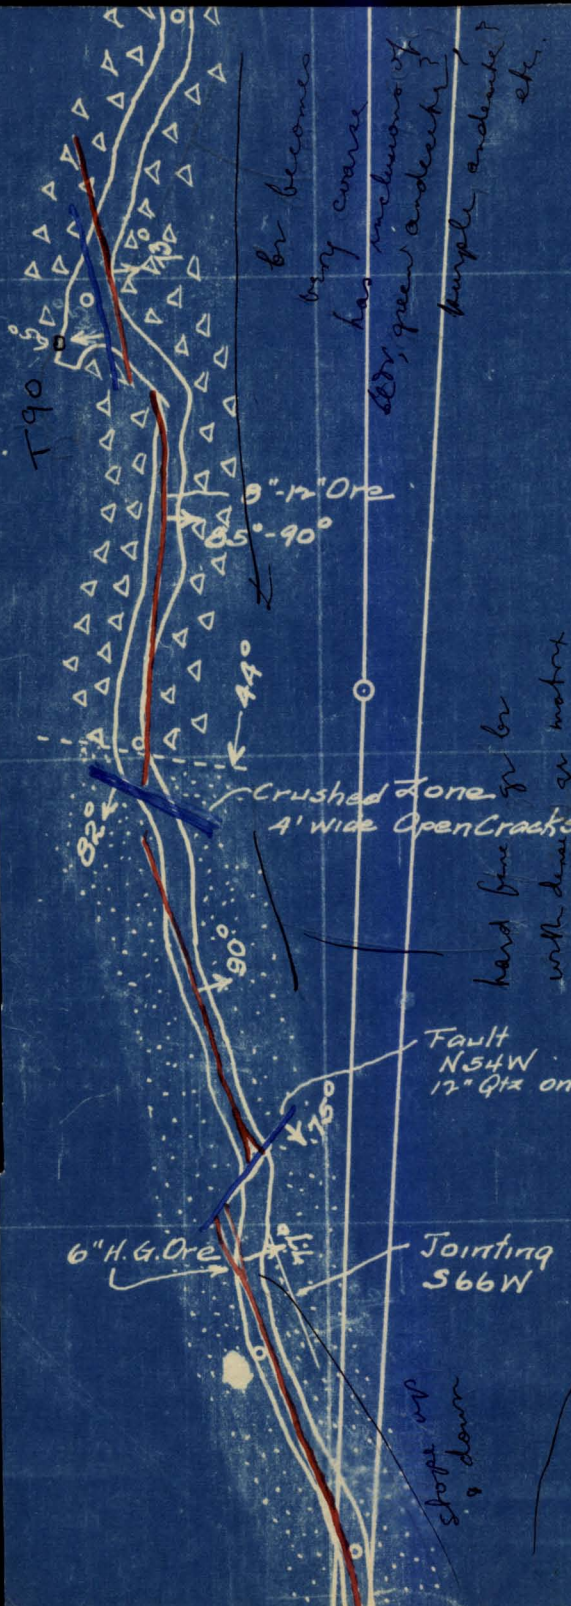 br becomes
very coarse
has inclusions of
green andesite?
purple andesite?
etc.
75°
T90
8"-12" Ore
85°-90°
44°
Crushed Zone
4' Wide Open Cracks
82°
hard fine gr br
with dense gr matrix
90°
Fault
N54W
12" Qtz on
75°
6" H.G. Ore
Jointing
S66W
Stope up
& down